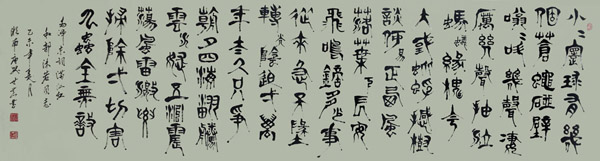 小小寰球有幾
個蒼蠅碰壁
嗡嗡幾聲凄
厲幾聲抽泣
螞蟻緣槐夸
大國蚍蜉撼樹
談何易正西風
落葉下長安
飛鳴鏑多少事
從來急天地
轉光陰迫一萬
年太久只爭
朝夕四海翻騰
雲水怒五洲震
蕩風雷激要
掃除一切害
人蟲全無敵
毛澤東詞滿江紅
和郭沫若同志